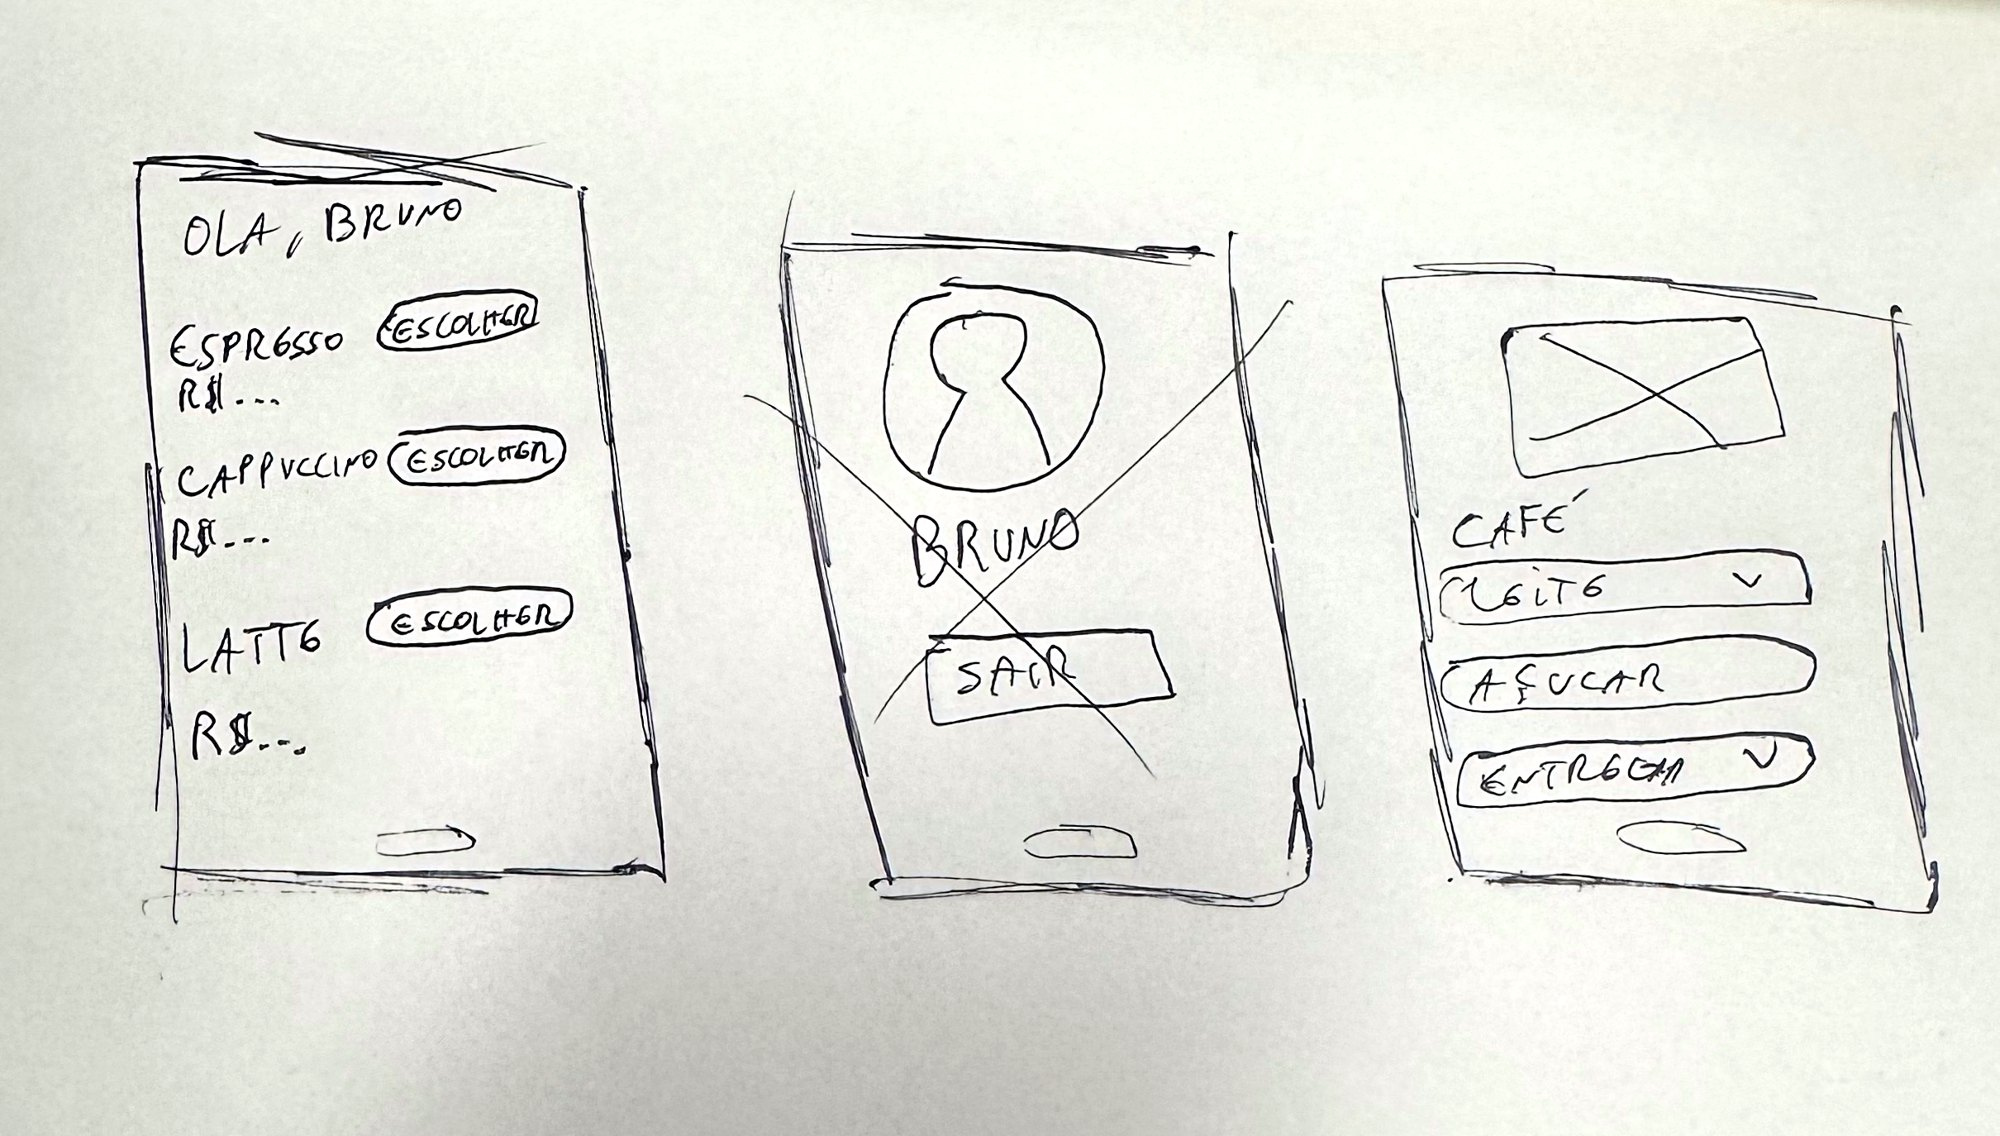 OLA, BRUNO
ESPRESSO ESCOLHER
R$...
CAPPUCCINO ESCOLHER
R$...
LATTE ESCOLHER
R$...
BRUNO
SAIR
CAFÉ
LEITE
AÇUCAR
ENTREGAR